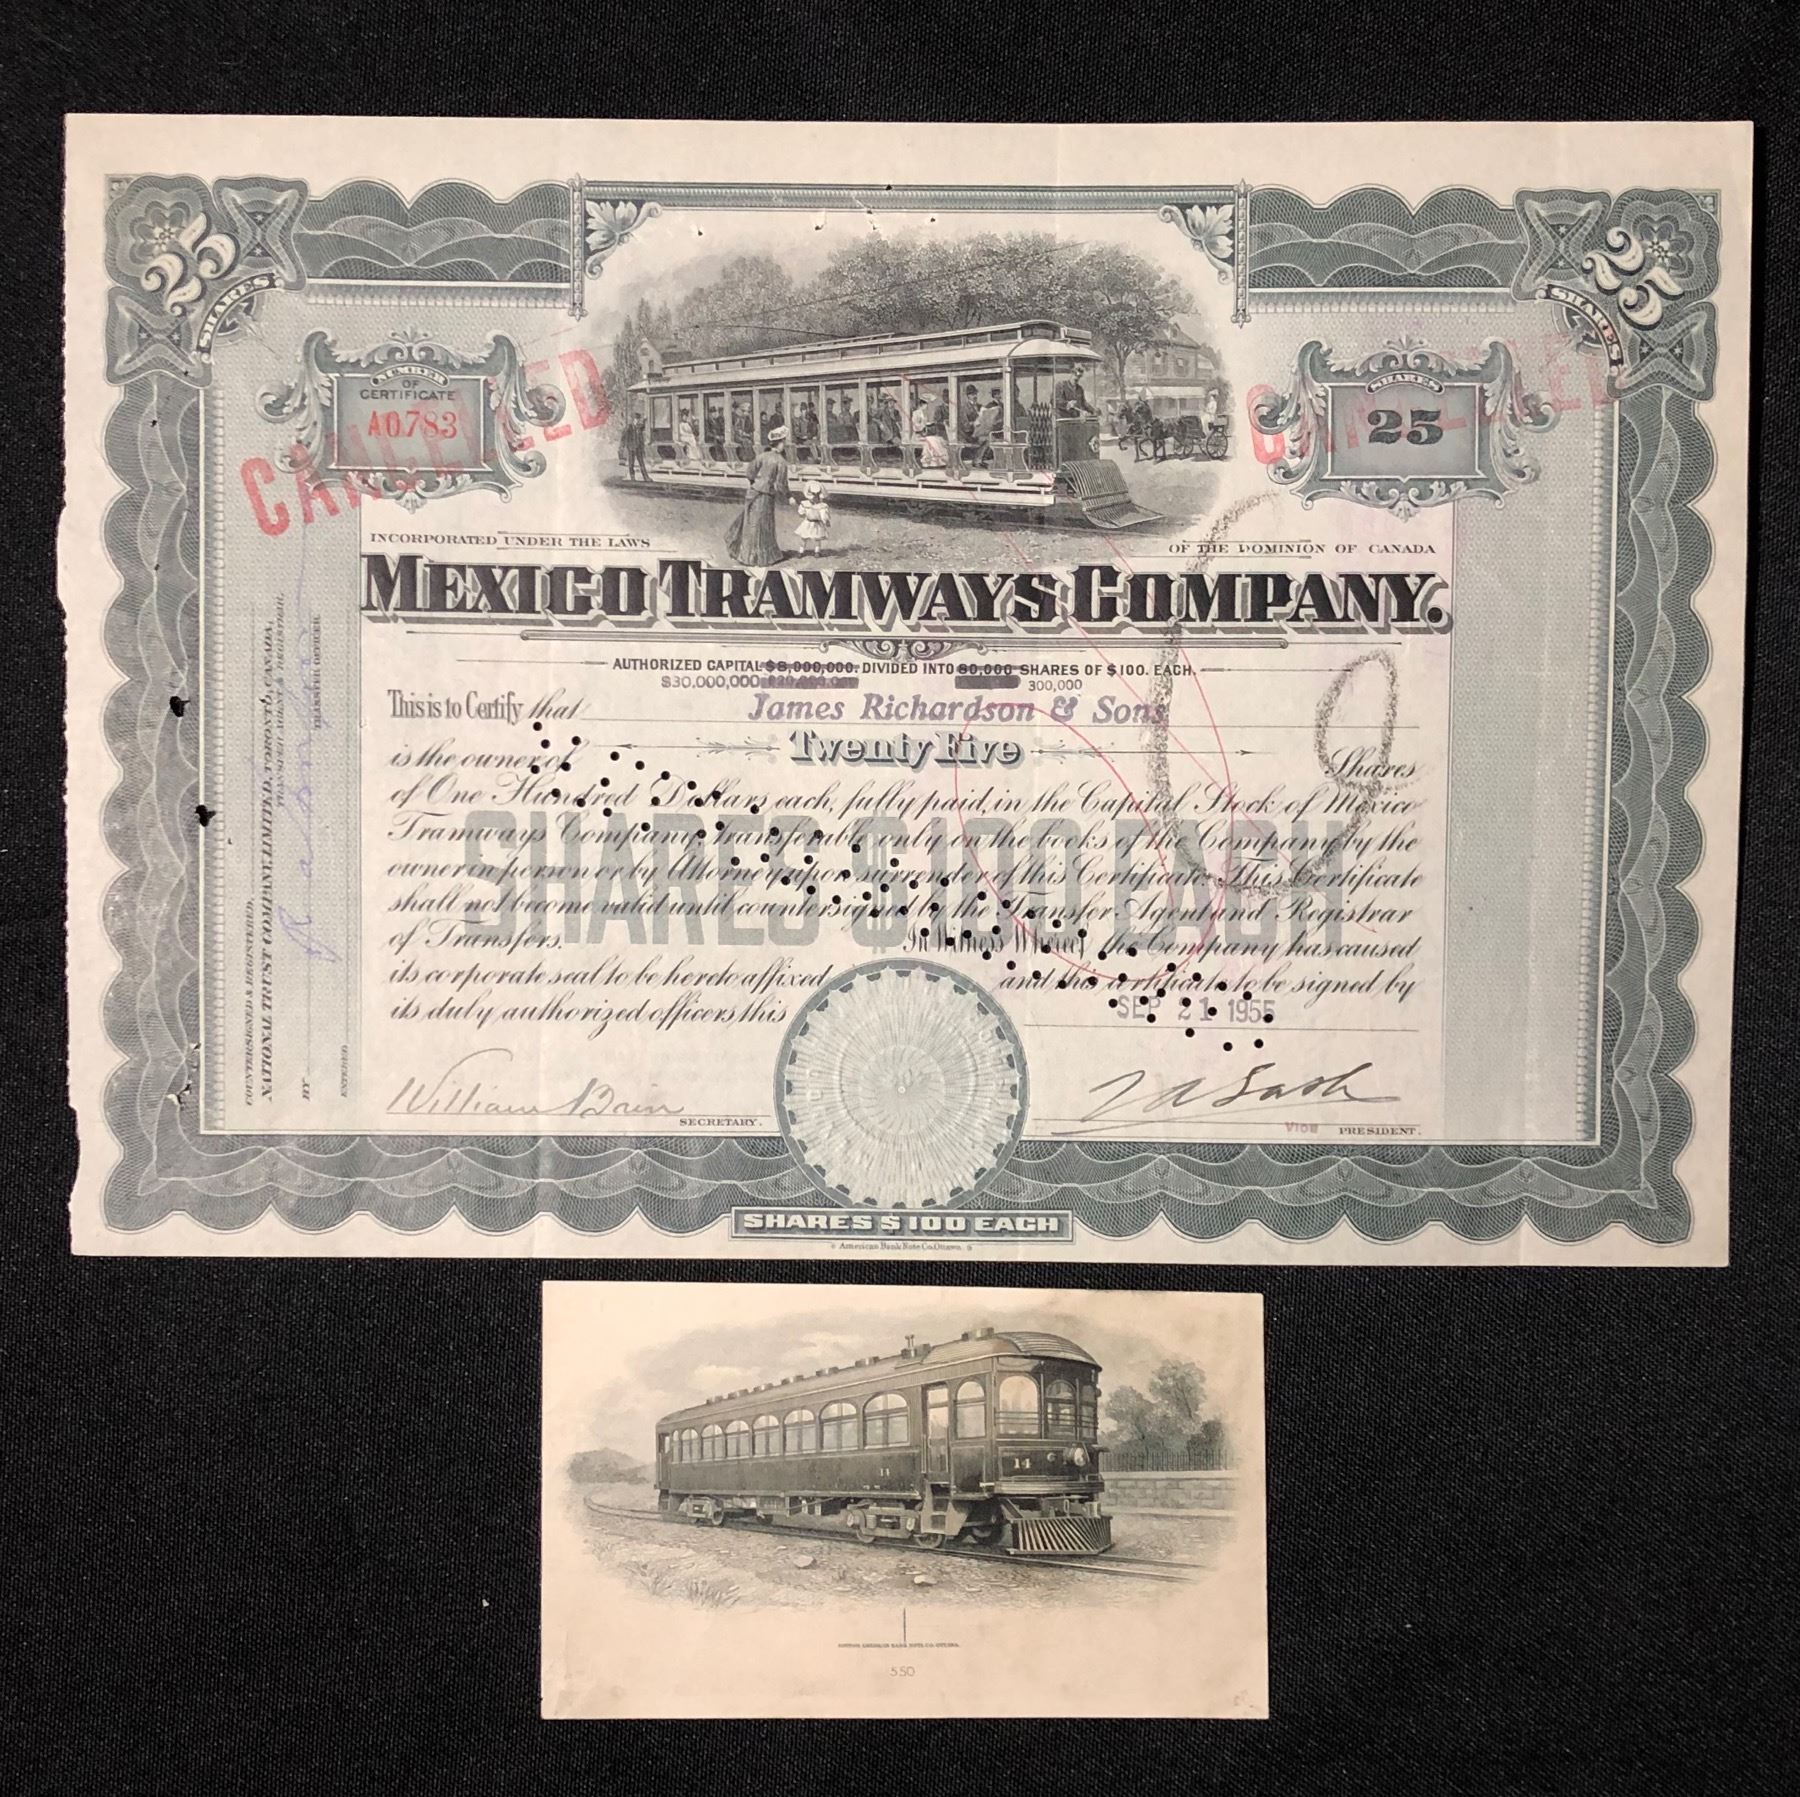 25 SHARES
25 SHARES
NUMBER
OF
CERTIFICATE
A0783
CANCELLED
SHARES
25
CANCELLED
INCORPORATED UNDER THE LAWS OF THE DOMINION OF CANADA
MEXICO TRAMWAYS COMPANY.
AUTHORIZED CAPITAL $8,000,000. DIVIDED INTO 80,000 SHARES OF $100. EACH.
$30,000,000 300,000
This is to Certify that James Richardson & Sons
is the owner of Twenty Five Shares
of One Hundred Dollars each, fully paid, in the Capital Stock of Mexico
Tramways Company, transferable only on the books of the Company by the
owner in person or by Attorney upon surrender of this Certificate. This Certificate
shall not become valid until countersigned by the Transfer Agent and Registrar
of Transfers. In Witness Whereof the Company has caused
its corporate seal to be hereto affixed and this certificate to be signed by
its duly authorized officers this SEP 21 1955
SHARES $100 EACH
SECRETARY.
VICE PRESIDENT.
COUNTERSIGNED & REGISTERED
NATIONAL TRUST COMPANY, LIMITED, TORONTO, CANADA,
TRANSFER AGENT & REGISTRAR.
BY
TRANSFER OFFICER.
ENTERED
SHARES $100 EACH
American Bank Note Co. Ottawa.
14
14
550